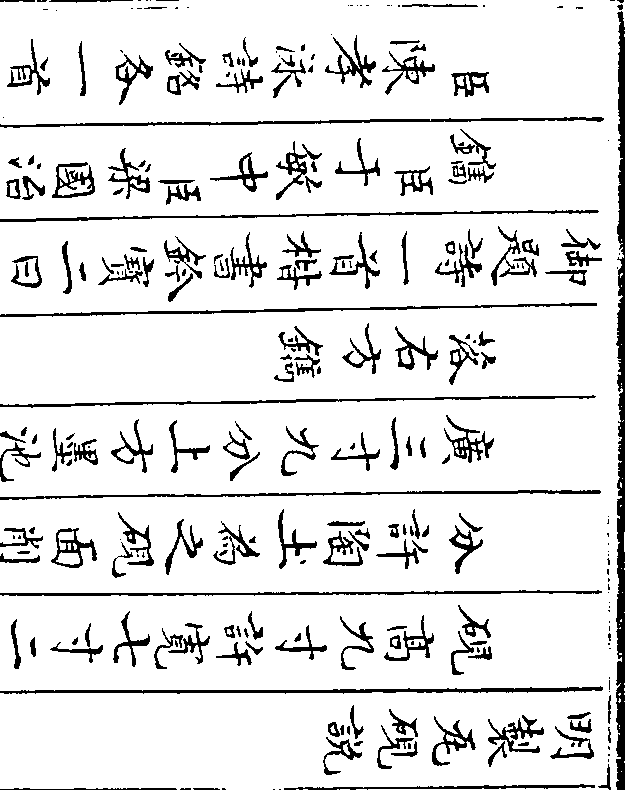 明製瓦硯說
硯高九寸許寬七寸二
分許陶土為之硯面削
廣三寸九分上方墨池
落右方鐫
御題詩一首楷書鈐寶二曰
鐫臣于敏中臣梁國治
臣陳孝泳詩銘各一首